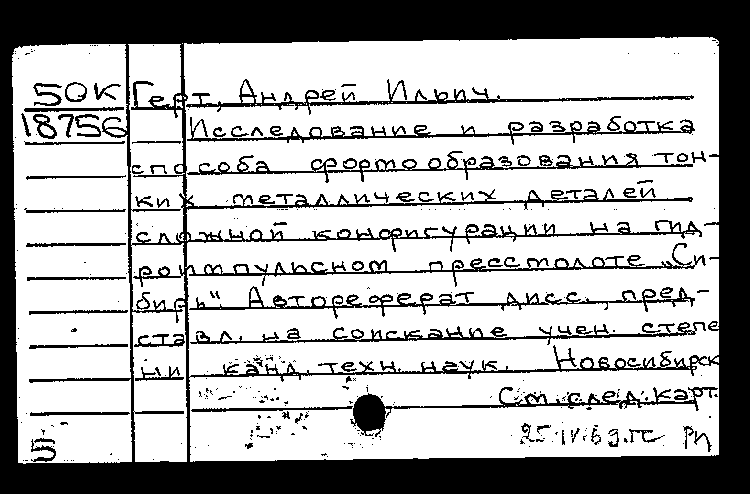 50К Герт, Андрей Ильич.
18756 Исследование и разработка
способа формообразования тон-
ких металлических деталей
сложной конфигурации на гид-
роимпульсном прессмолоте „Си-
бирь“ Автореферат дисс., пред-
ставл. на соискание учен. степе
ни канд. техн. наук. Новосибирск
См. след. карт.
5